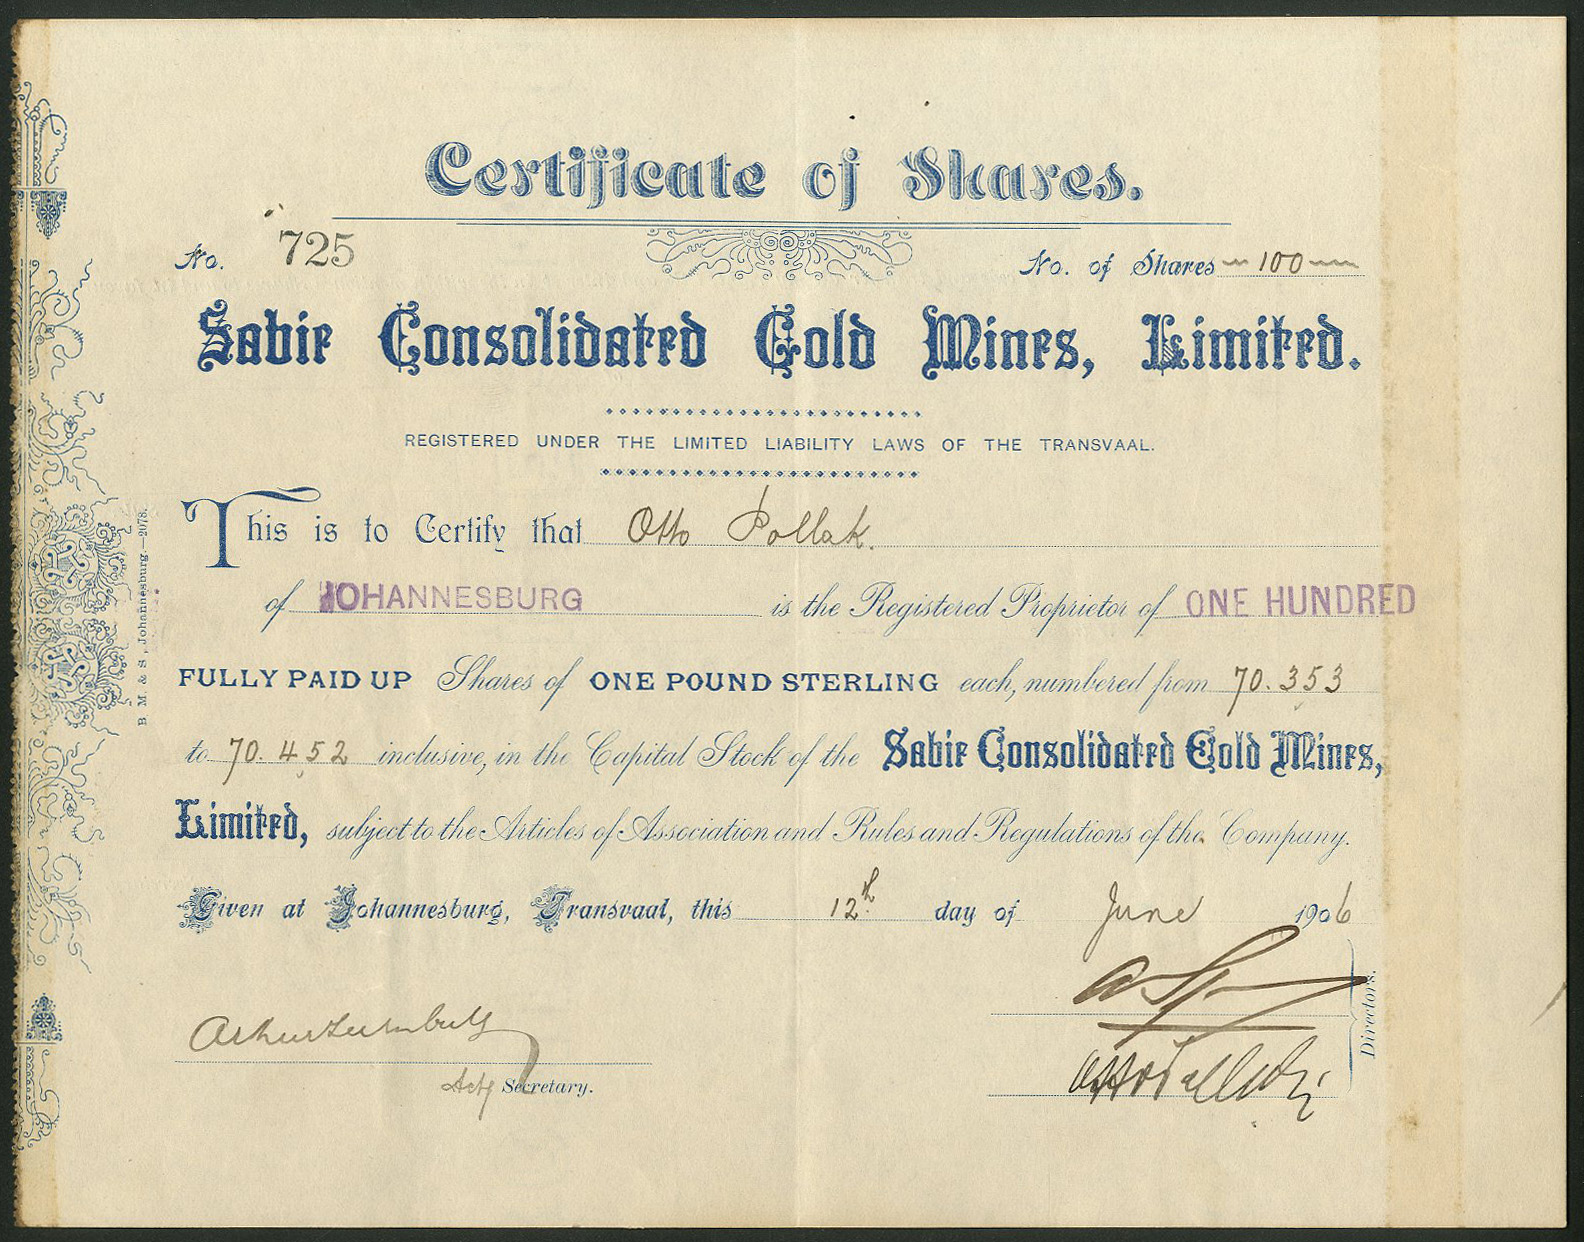 Certificate of Shares.
No. 725
No. of Shares 100
Sabie Consolidated Gold Mines, Limited.
REGISTERED UNDER THE LIMITED LIABILITY LAWS OF THE TRANSVAAL.
This is to Certify that Otto Pollak.
of JOHANNESBURG is the Registered Proprietor of ONE HUNDRED
FULLY PAID UP Shares of ONE POUND STERLING each, numbered from 70.353
to 70.452 inclusive, in the Capital Stock of the Sabie Consolidated Gold Mines,
Limited, subject to the Articles of Association and Rules and Regulations of the Company.
Given at Johannesburg, Transvaal, this 12th day of June 1906
Directors.
Actg Secretary.
B M. & S, Johannesburg.—2078.